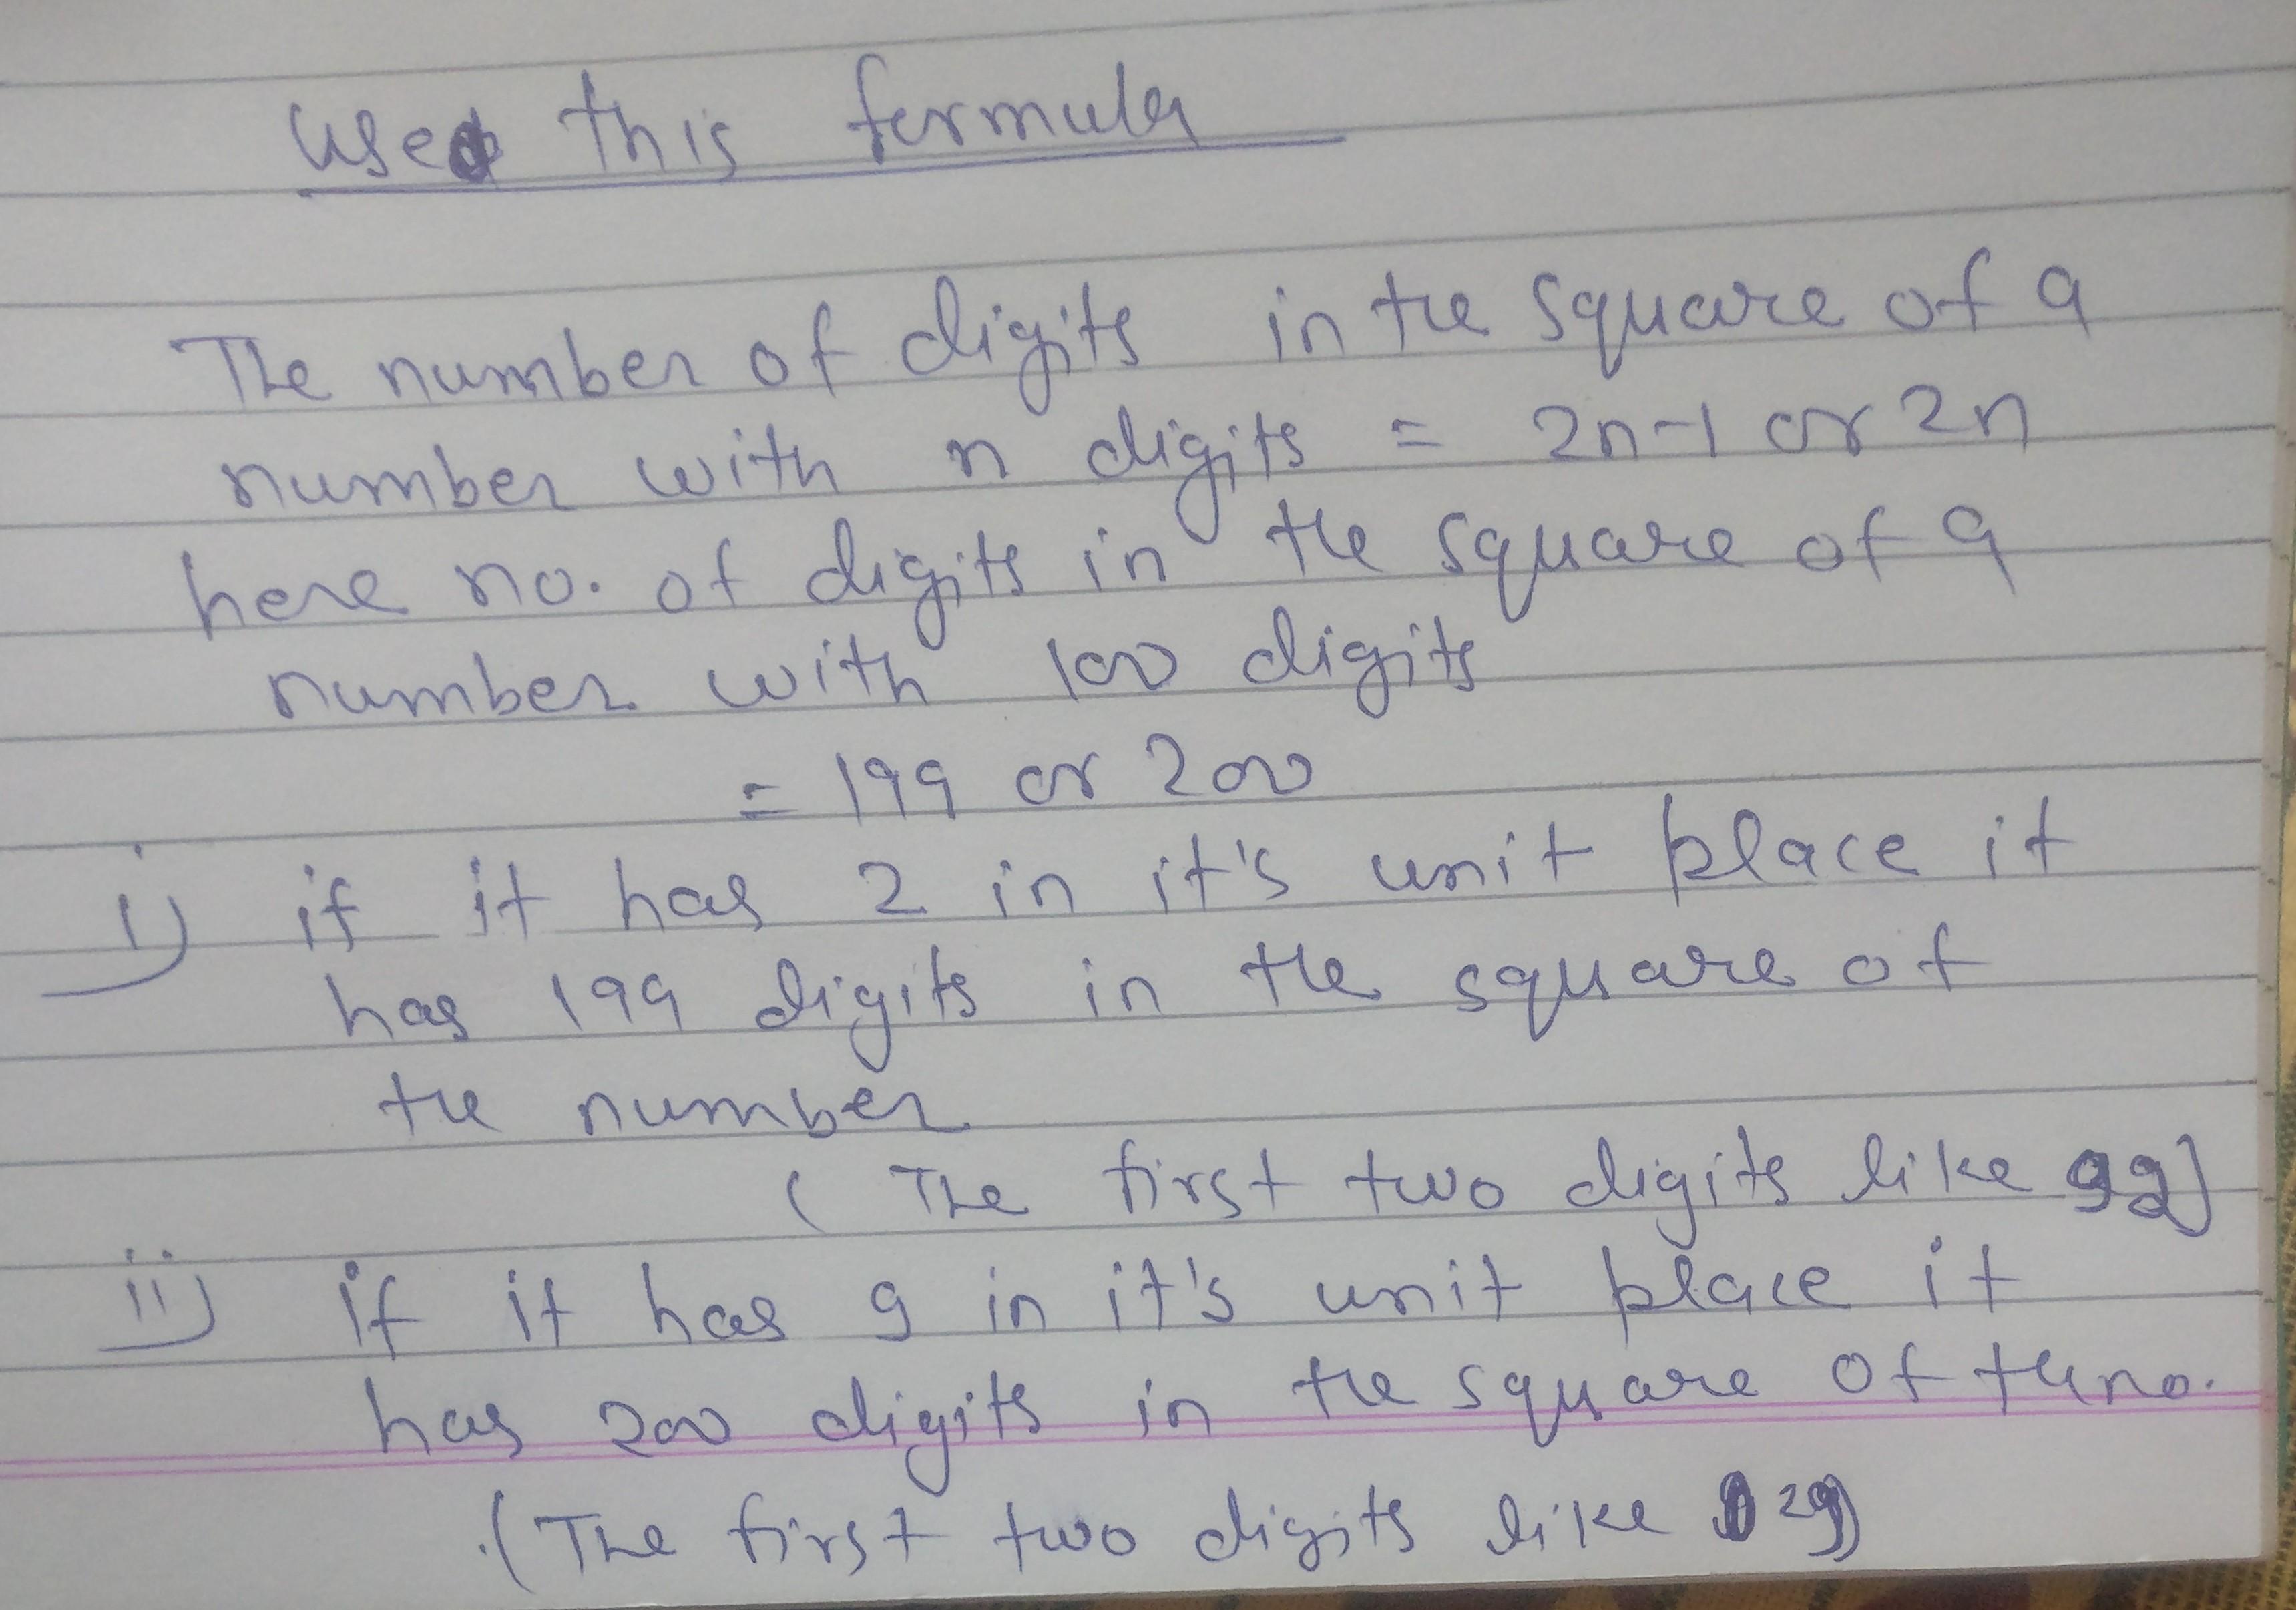 Used this formula
The number of digits in the square of a
number with n digits = 2n-1 or 2n
here no. of digits in the square of a
number with 100 digits
= 199 or 200
i) if it has 2 in it's unit place it
has 199 digits in the square of
the number
( The first two digits like 92)
ii) if it has 9 in it's unit place it
has 200 digits in the square of the no.
(The first two digits like 29)